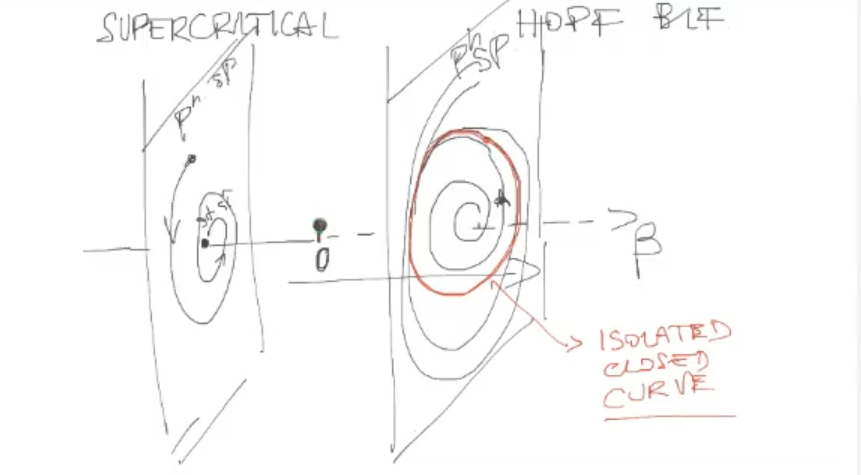 SUPERCRITICAL HOPF BIF
Pʰ SP
Pʰ SP
0
β
ISOLATED
CLOSED
CURVE